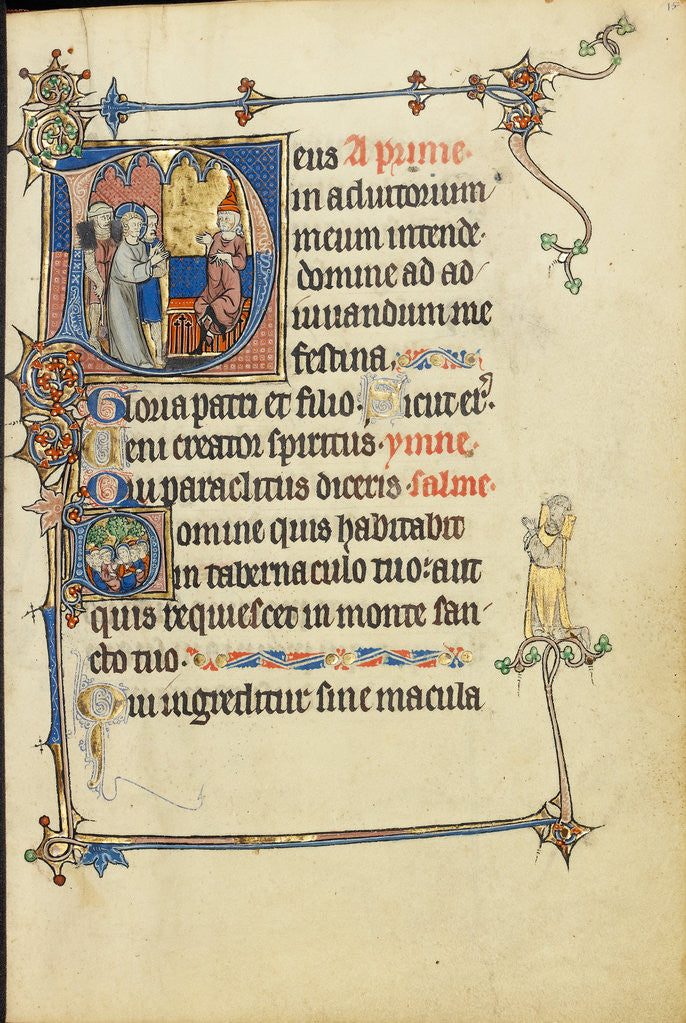 15
Deus A prime·
in adiutorium
meum intende·
domine ad ad
iuuandum me
festina,
Gloria patri et filio· Sicut er̃·
Ueni creator spiritus· ymne·
Qui paraclitus diceris· salme·
Domine quis habitabit
in tabernaculo tuo: aut
quis requiescet in monte san
cto tuo·
Qui ingreditur sine macula